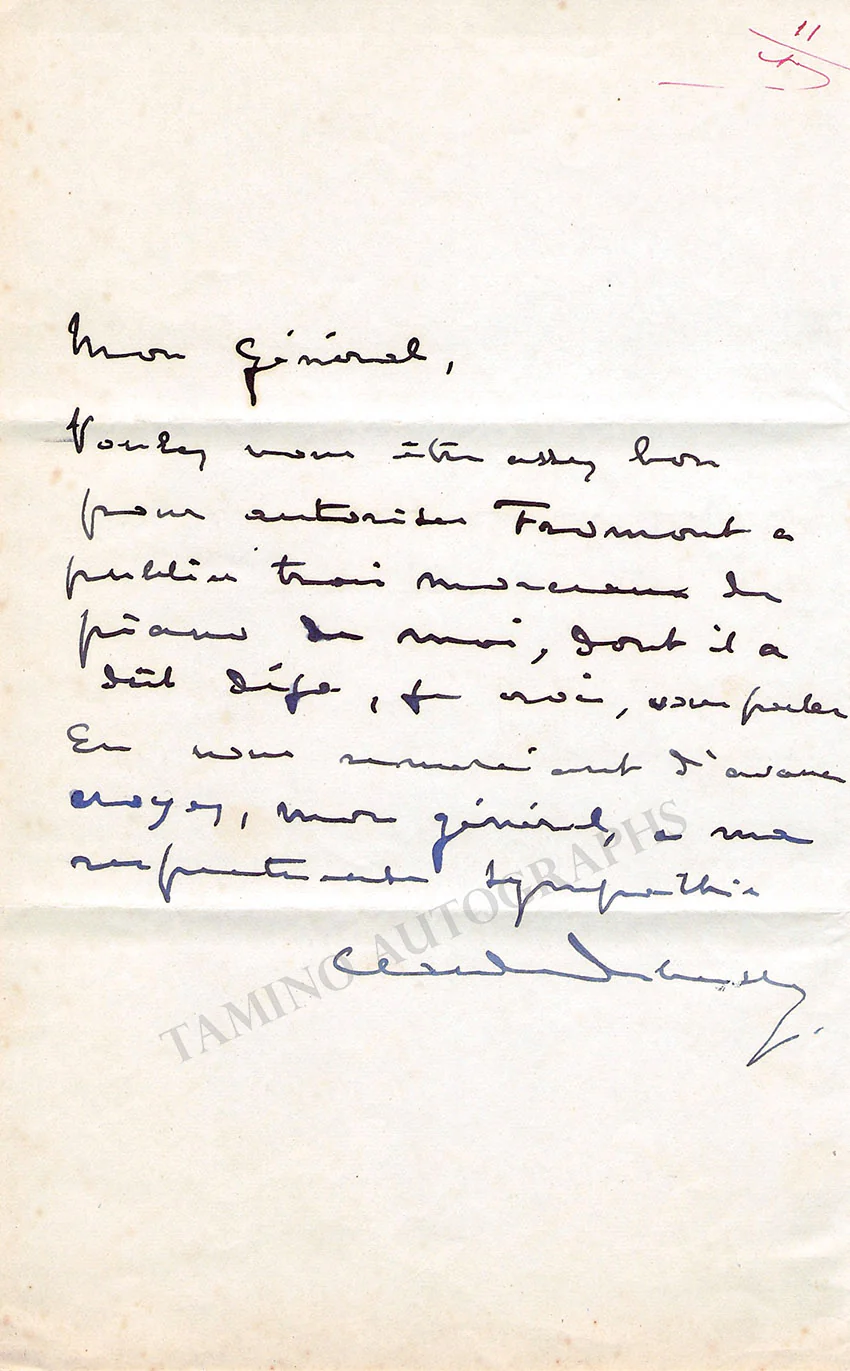 11
Mon Général,
Voulez vous être assez bon
pour autoriser Fromont a
publier trois morceaux de
piano de moi, dont il a
dût déja, je crois, vous parler
En vous remerciant d'avance
croyez, mon général, a ma
respectueuse sympathie
Claude Debussy.
TAMINO AUTOGRAPHS